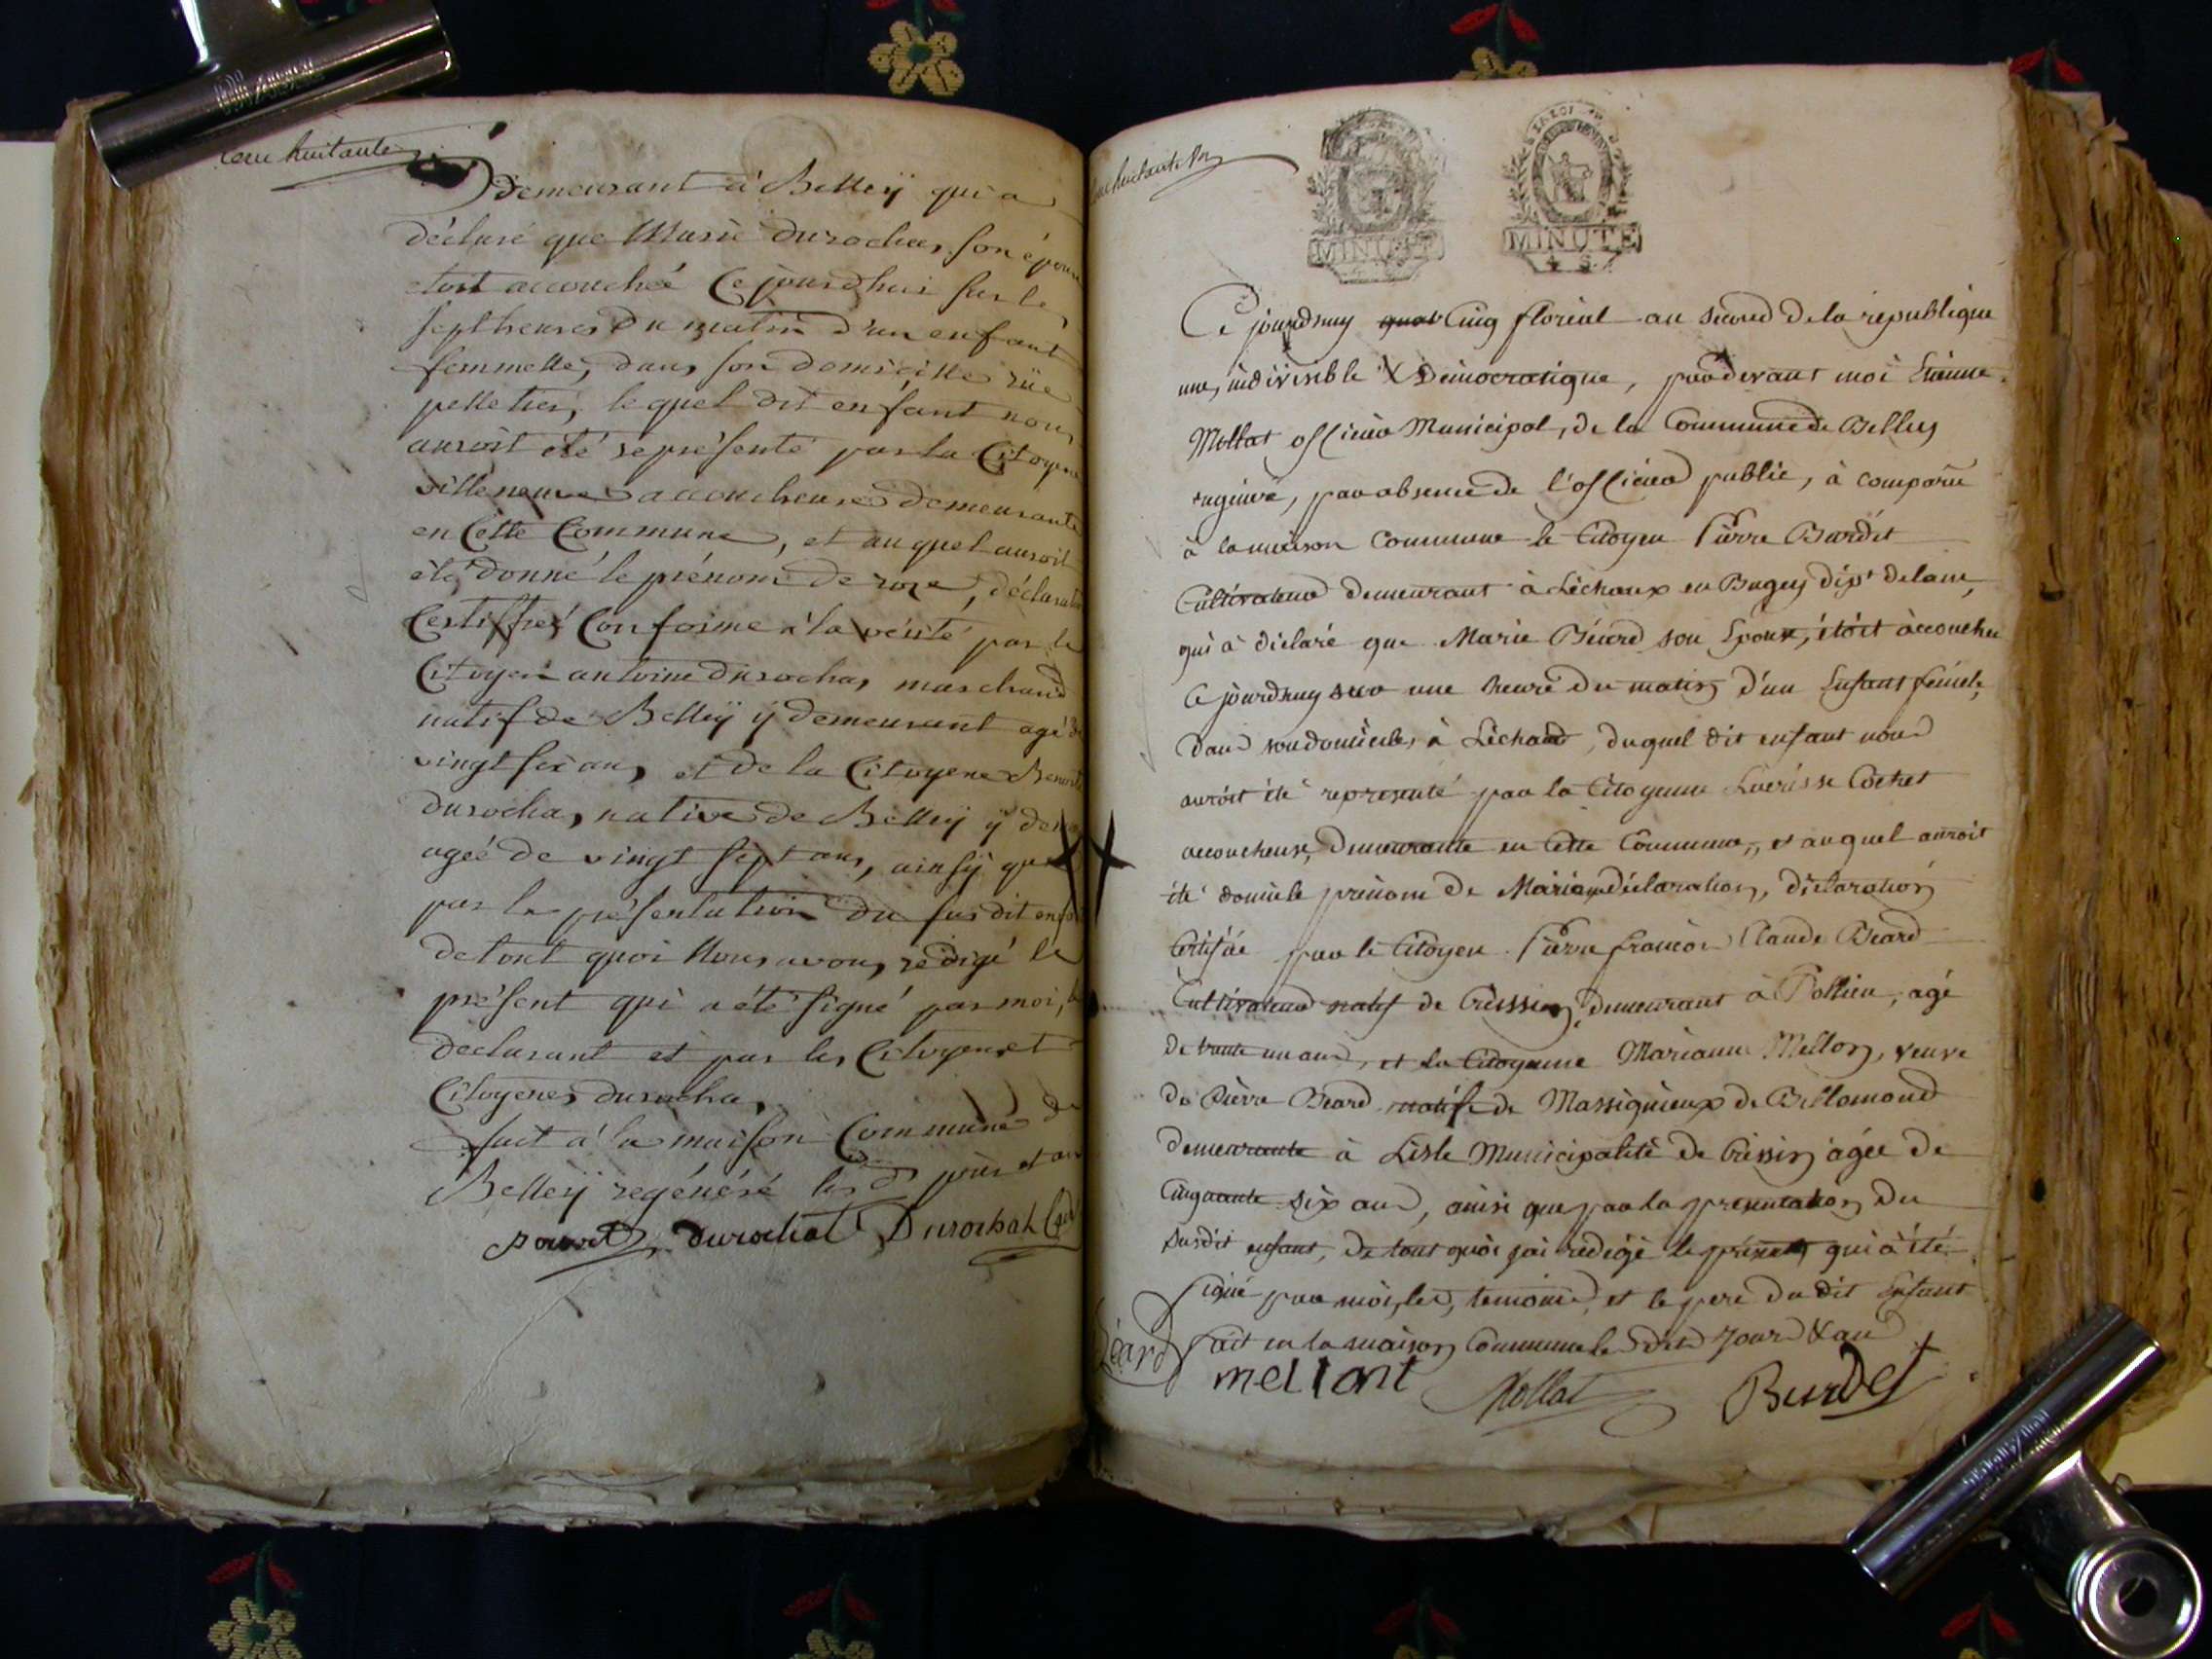 cent huitante
demeurant à Belleÿ qui a
déclaré que Marie durochas son épouse
etoit accouchée Cejourdhui sur le
sept heures du matin d'un enfant
femmelle, dans son domicille rüe
pelletier, lequel dit enfant nous
auroit été représenté par la Citoyene
villeneuve accoucheuse demeurante
en Cette Commune, et auquel auroit
été donné le prénom de roze, déclaration
Certiffiée Conforme a la vérité par le
Citoyen antoine durochas marchand
natif de Belleÿ ÿ demeurant agé de
vingt six ans, et de la Citoyene
durochas, native de Belleÿ ÿ
ageé de vingt sept ans, ainsÿ que
par la présentation du susdit enfant
de tout quoi Nous avons rédigé le
présent qui a été signé par moi, le
declarant et par les Citoyens et
Citoyenes durochas
fait à la maison Commune de
Belleÿ regénéré les d. jour et an
durochat Durochat
cent huitante un
MINUTE
MINUTE
4 S.
Ce jourdhuy Cinq floréal an second de la république
une, indivisible & Démocratique, pardevant moi Etienne
Mollat officier Municipal, de la Commune de Belley
regénéré, par absence de l'officier public, à comparu
à la maison Commune le Citoyen Pierre Burdet
Cultivateur demeurant à Léchaux en Bugey dépt delain,
qui à déclaré que Marie Béard son Epouse, étoit accouchée
Ce jourdhuy sur une heure du matin d'un Enfant fémele,
dans son domicile, à Léchaud, duquel dit enfant nous
auroit été représenté par la Citoyenne Lucresse Cochet
accoucheuse, demeurante en Cette Commune, et auquel auroit
été donné le prénom de Marie déclaration, déclaration
Certifiée par le Citoyen Pierre françois Claude Béard
Cultivateur natif de Créssieu, demeurant à Pollieu, agé
de trente un ans, et la Citoyenne Marianne Mellon, veuve
de Pierre Béard native de Massignieux de Bellomond
demeurante à Lisle Municipalité de Créssin agée de
Cinquante six ans, ainsi que par la présentation du
susdit enfant, de tout quoi jai rédigé le présent, qui à été
signé par moi, les, temoins, et le pere du dit Enfant
fait en la maison Commune les dits Jour & an
Béard mellont Mollat Burdet